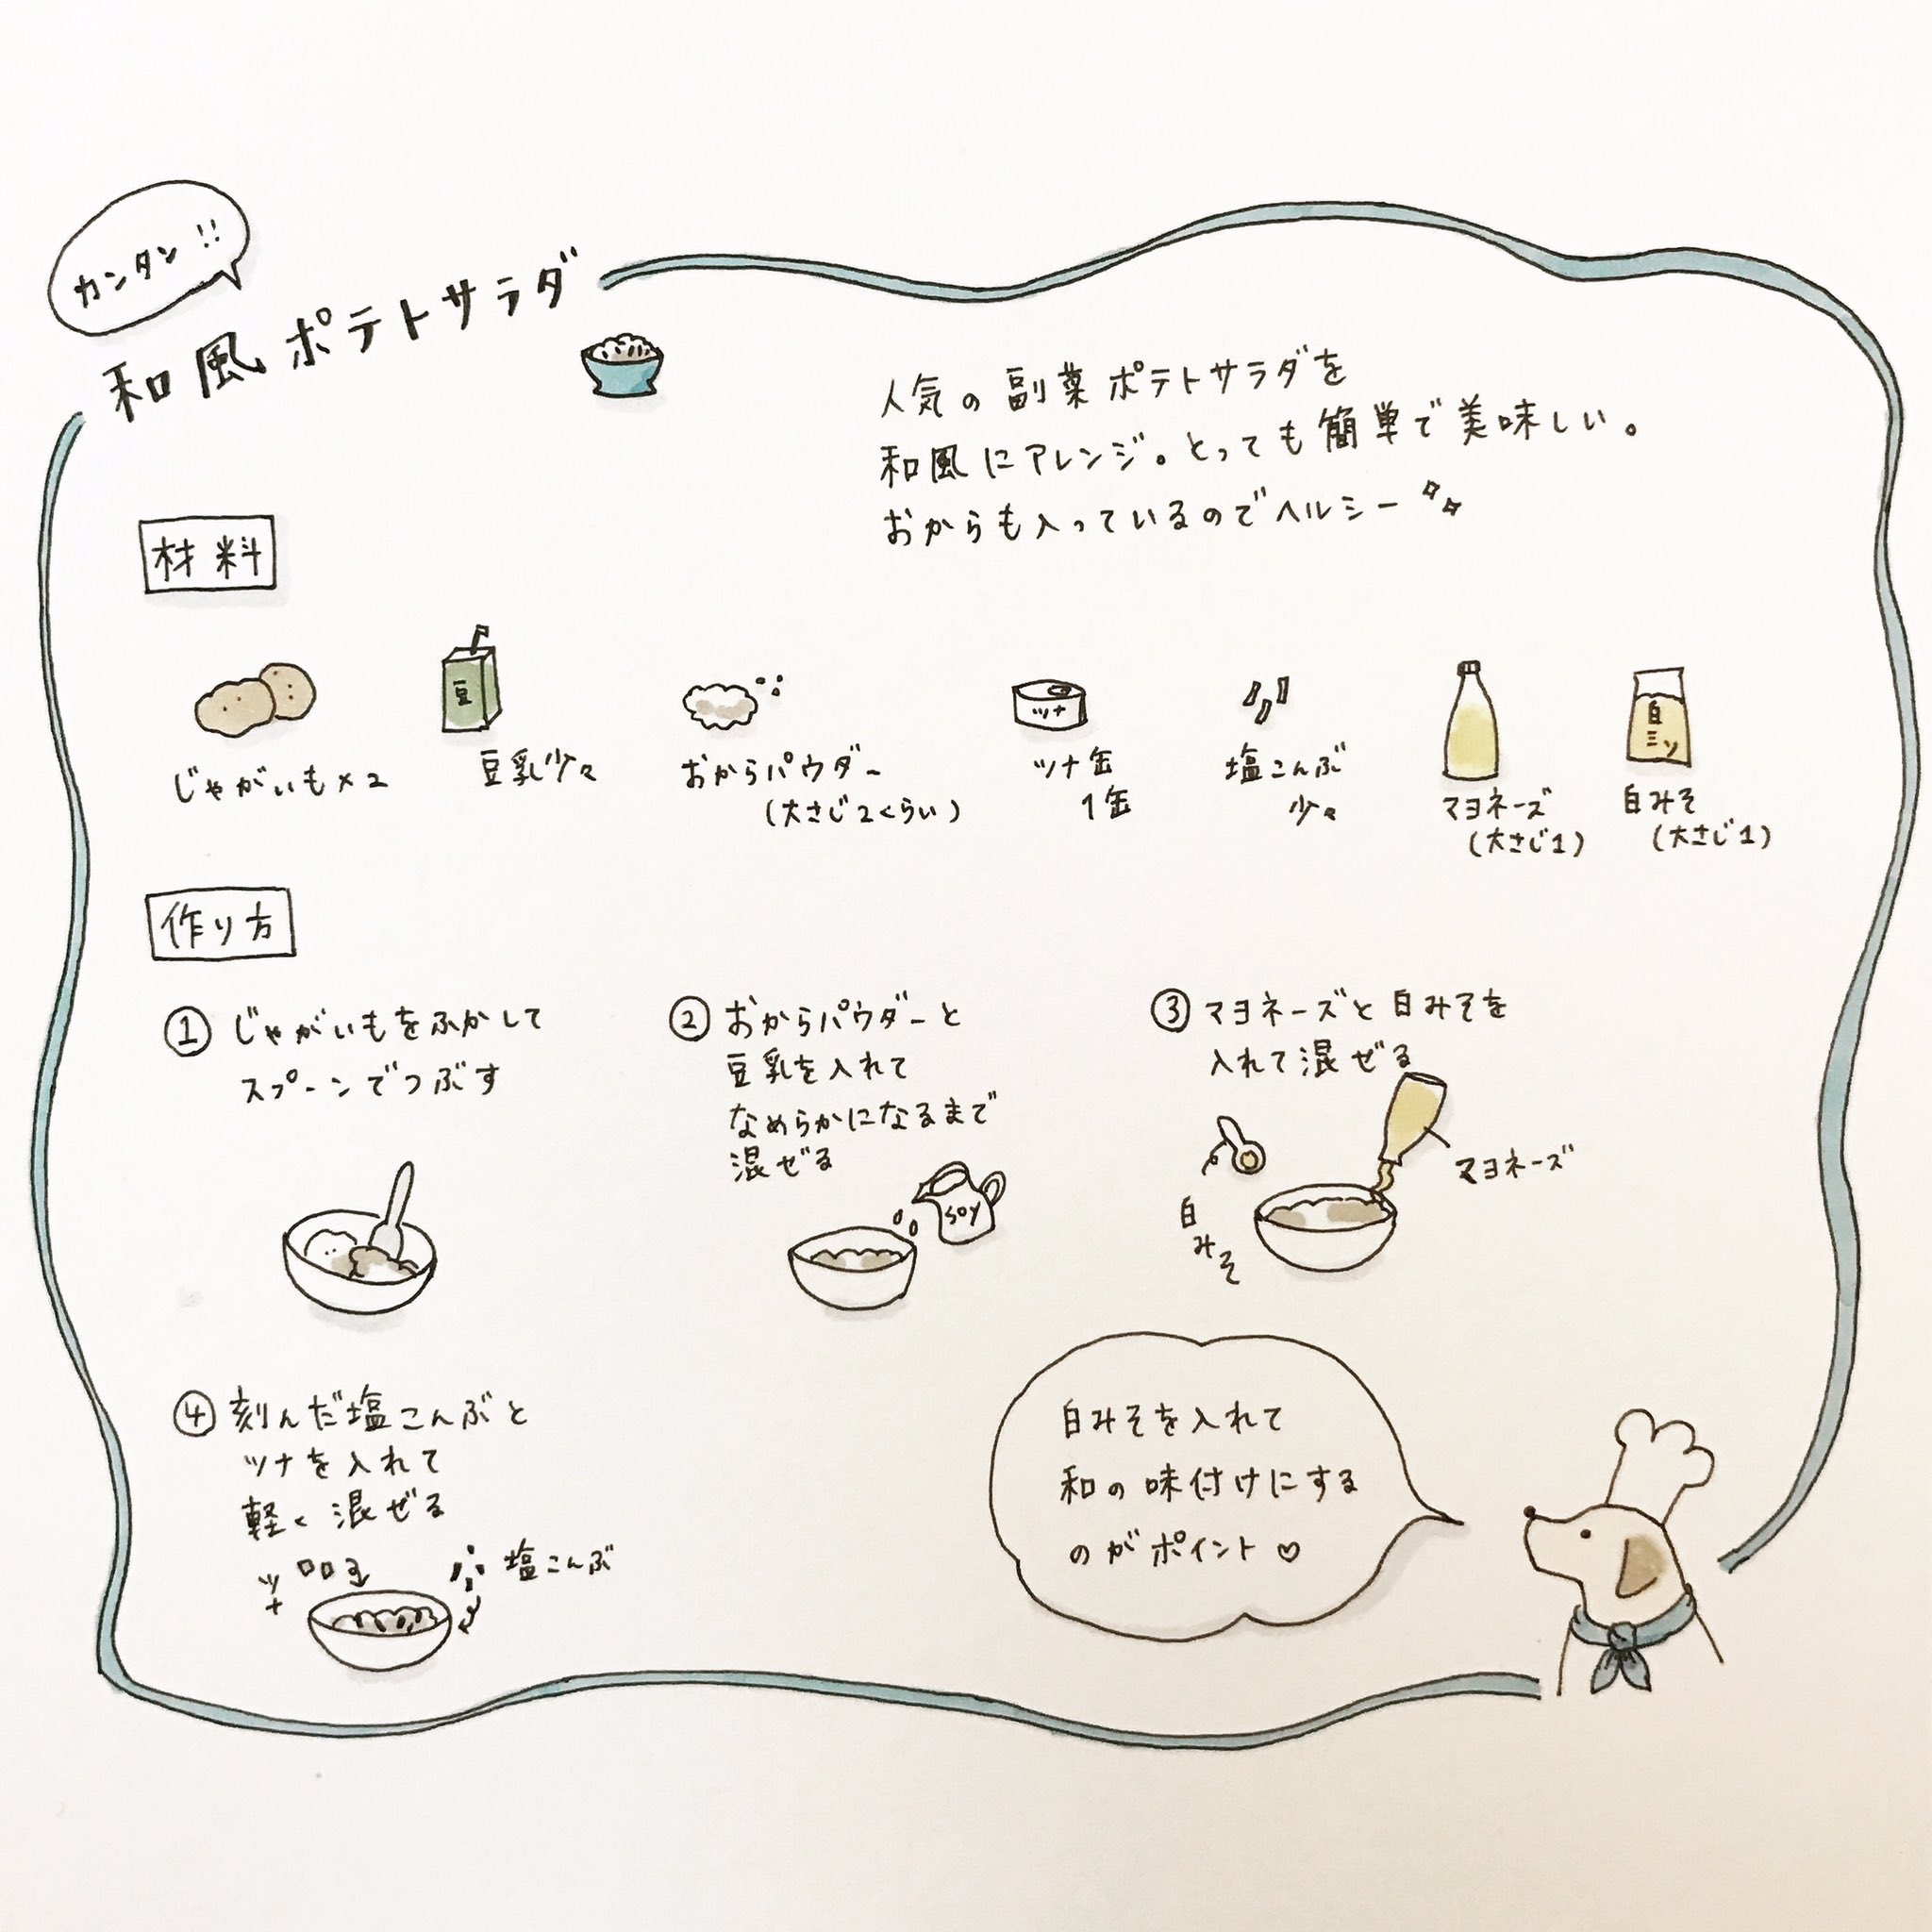 カンタン!!
和風ポテトサラダ
人気の副菜ポテトサラダを
和風にアレンジ。とっても簡単で美味しい。
おからも入っているのでヘルシー
材料
豆
ツナ
白ミソ
じゃがいも×2
豆乳少々
おからパウダー
(大さじ2くらい)
ツナ缶
1缶
塩こんぶ
少々
マヨネーズ
(大さじ1)
白みそ
(大さじ1)
作り方
① じゃがいもをふかして
スプーンでつぶす
② おからパウダーと
豆乳を入れて
なめらかになるまで
混ぜる
SOY
③ マヨネーズと白みそを
入れて混ぜる
マヨネーズ
白みそ
④ 刻んだ塩こんぶと
ツナを入れて
軽く混ぜる
ツナ
塩こんぶ
白みそを入れて
和の味付けにする
のがポイント♡